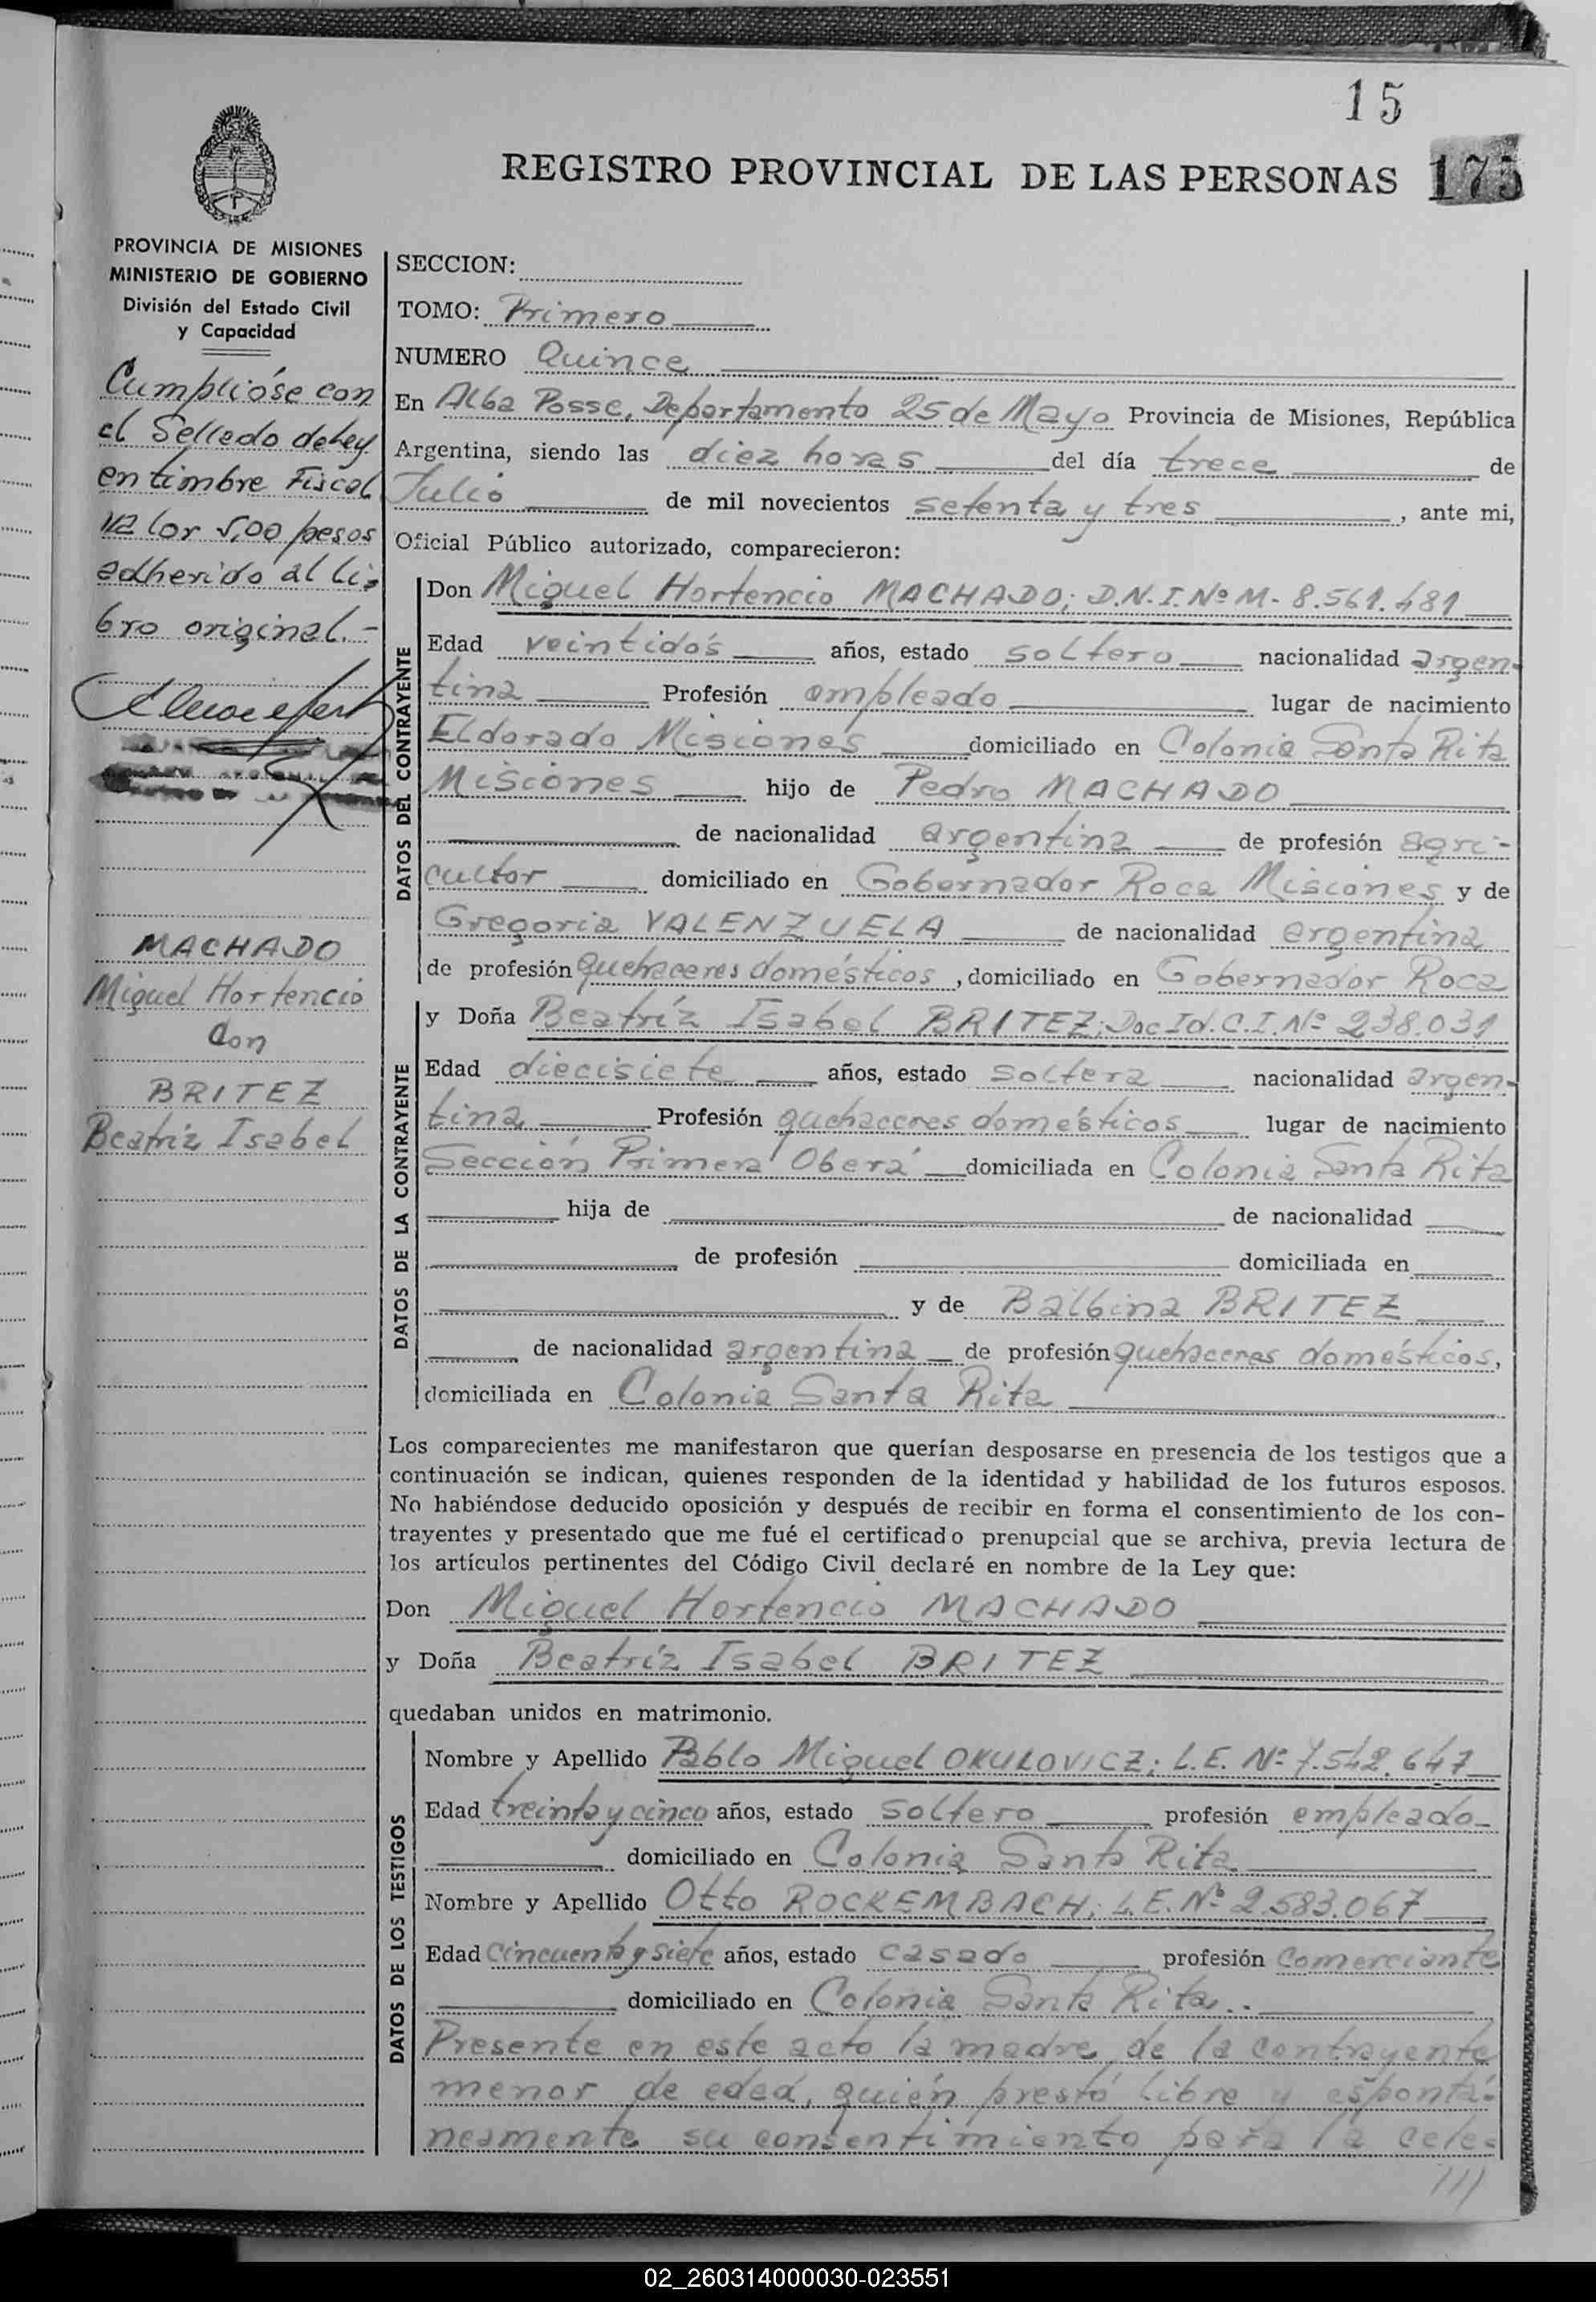 15
REGISTRO PROVINCIAL DE LAS PERSONAS 175
PROVINCIA DE MISIONES
MINISTERIO DE GOBIERNO
División del Estado Civil
y Capacidad
Cumplióse con
el Sellado de Ley
en timbre Fiscal
valor 5,00 pesos
adherido al li-
bro original.-
MACHADO
Miguel Hortencio
Con
BRITEZ
Beatríz Isabel
SECCION:
TOMO: Primero
NUMERO Quince
En Alba Posse, Departamento 25 de Mayo Provincia de Misiones, República
Argentina, siendo las diez horas del día trece de
Julio de mil novecientos setenta y tres, ante mi,
Oficial Público autorizado, comparecieron:
DATOS DEL CONTRAYENTE
Don Miguel Hortencio MACHADO; D.N.I. Nº M- 8.561.481
Edad veintidós años, estado soltero nacionalidad argen-
tina Profesión empleado lugar de nacimiento
Eldorado Misiones domiciliado en Colonia Santa Rita
Misiones hijo de Pedro MACHADO
de nacionalidad argentina de profesión agri-
cultor domiciliado en Gobernador Roca Misiones y de
Gregoria VALENZUELA de nacionalidad argentina
de profesión quehaceres domésticos, domiciliado en Gobernador Roca
DATOS DE LA CONTRAYENTE
y Doña Beatríz Isabel BRITEZ; Doc Id. C.I. Nº 238.031
Edad diecisiete años, estado soltera nacionalidad argen-
tina Profesión quehaceres domésticos lugar de nacimiento
Sección Primera Oberá domiciliada en Colonia Santa Rita
hija de de nacionalidad
de profesión domiciliada en
y de Balbina BRITEZ
de nacionalidad argentina de profesión quehaceres domésticos,
domiciliada en Colonia Santa Rita
Los comparecientes me manifestaron que querían desposarse en presencia de los testigos que a
continuación se indican, quienes responden de la identidad y habilidad de los futuros esposos.
No habiéndose deducido oposición y después de recibir en forma el consentimiento de los con-
trayentes y presentado que me fué el certificado prenupcial que se archiva, previa lectura de
los artículos pertinentes del Código Civil declaré en nombre de la Ley que:
Don Miguel Hortencio MACHADO
y Doña Beatríz Isabel BRITEZ
quedaban unidos en matrimonio.
DATOS DE LOS TESTIGOS
Nombre y Apellido Pablo Miguel OKULOVICZ; L.E. Nº 7.542.647
Edad treinta y cinco años, estado soltero profesión empleado
domiciliado en Colonia Santa Rita
Nombre y Apellido Otto ROCKEMBACH; L.E. Nº 2.583.067
Edad cincuenta y siete años, estado casado profesión comerciante
domiciliado en Colonia Santa Rita..
Presente en este acto la madre de la contrayente
menor de edad, quién prestó libre y espontá-
neamente su consentimiento para la cele-
///
02_260314000030-023551